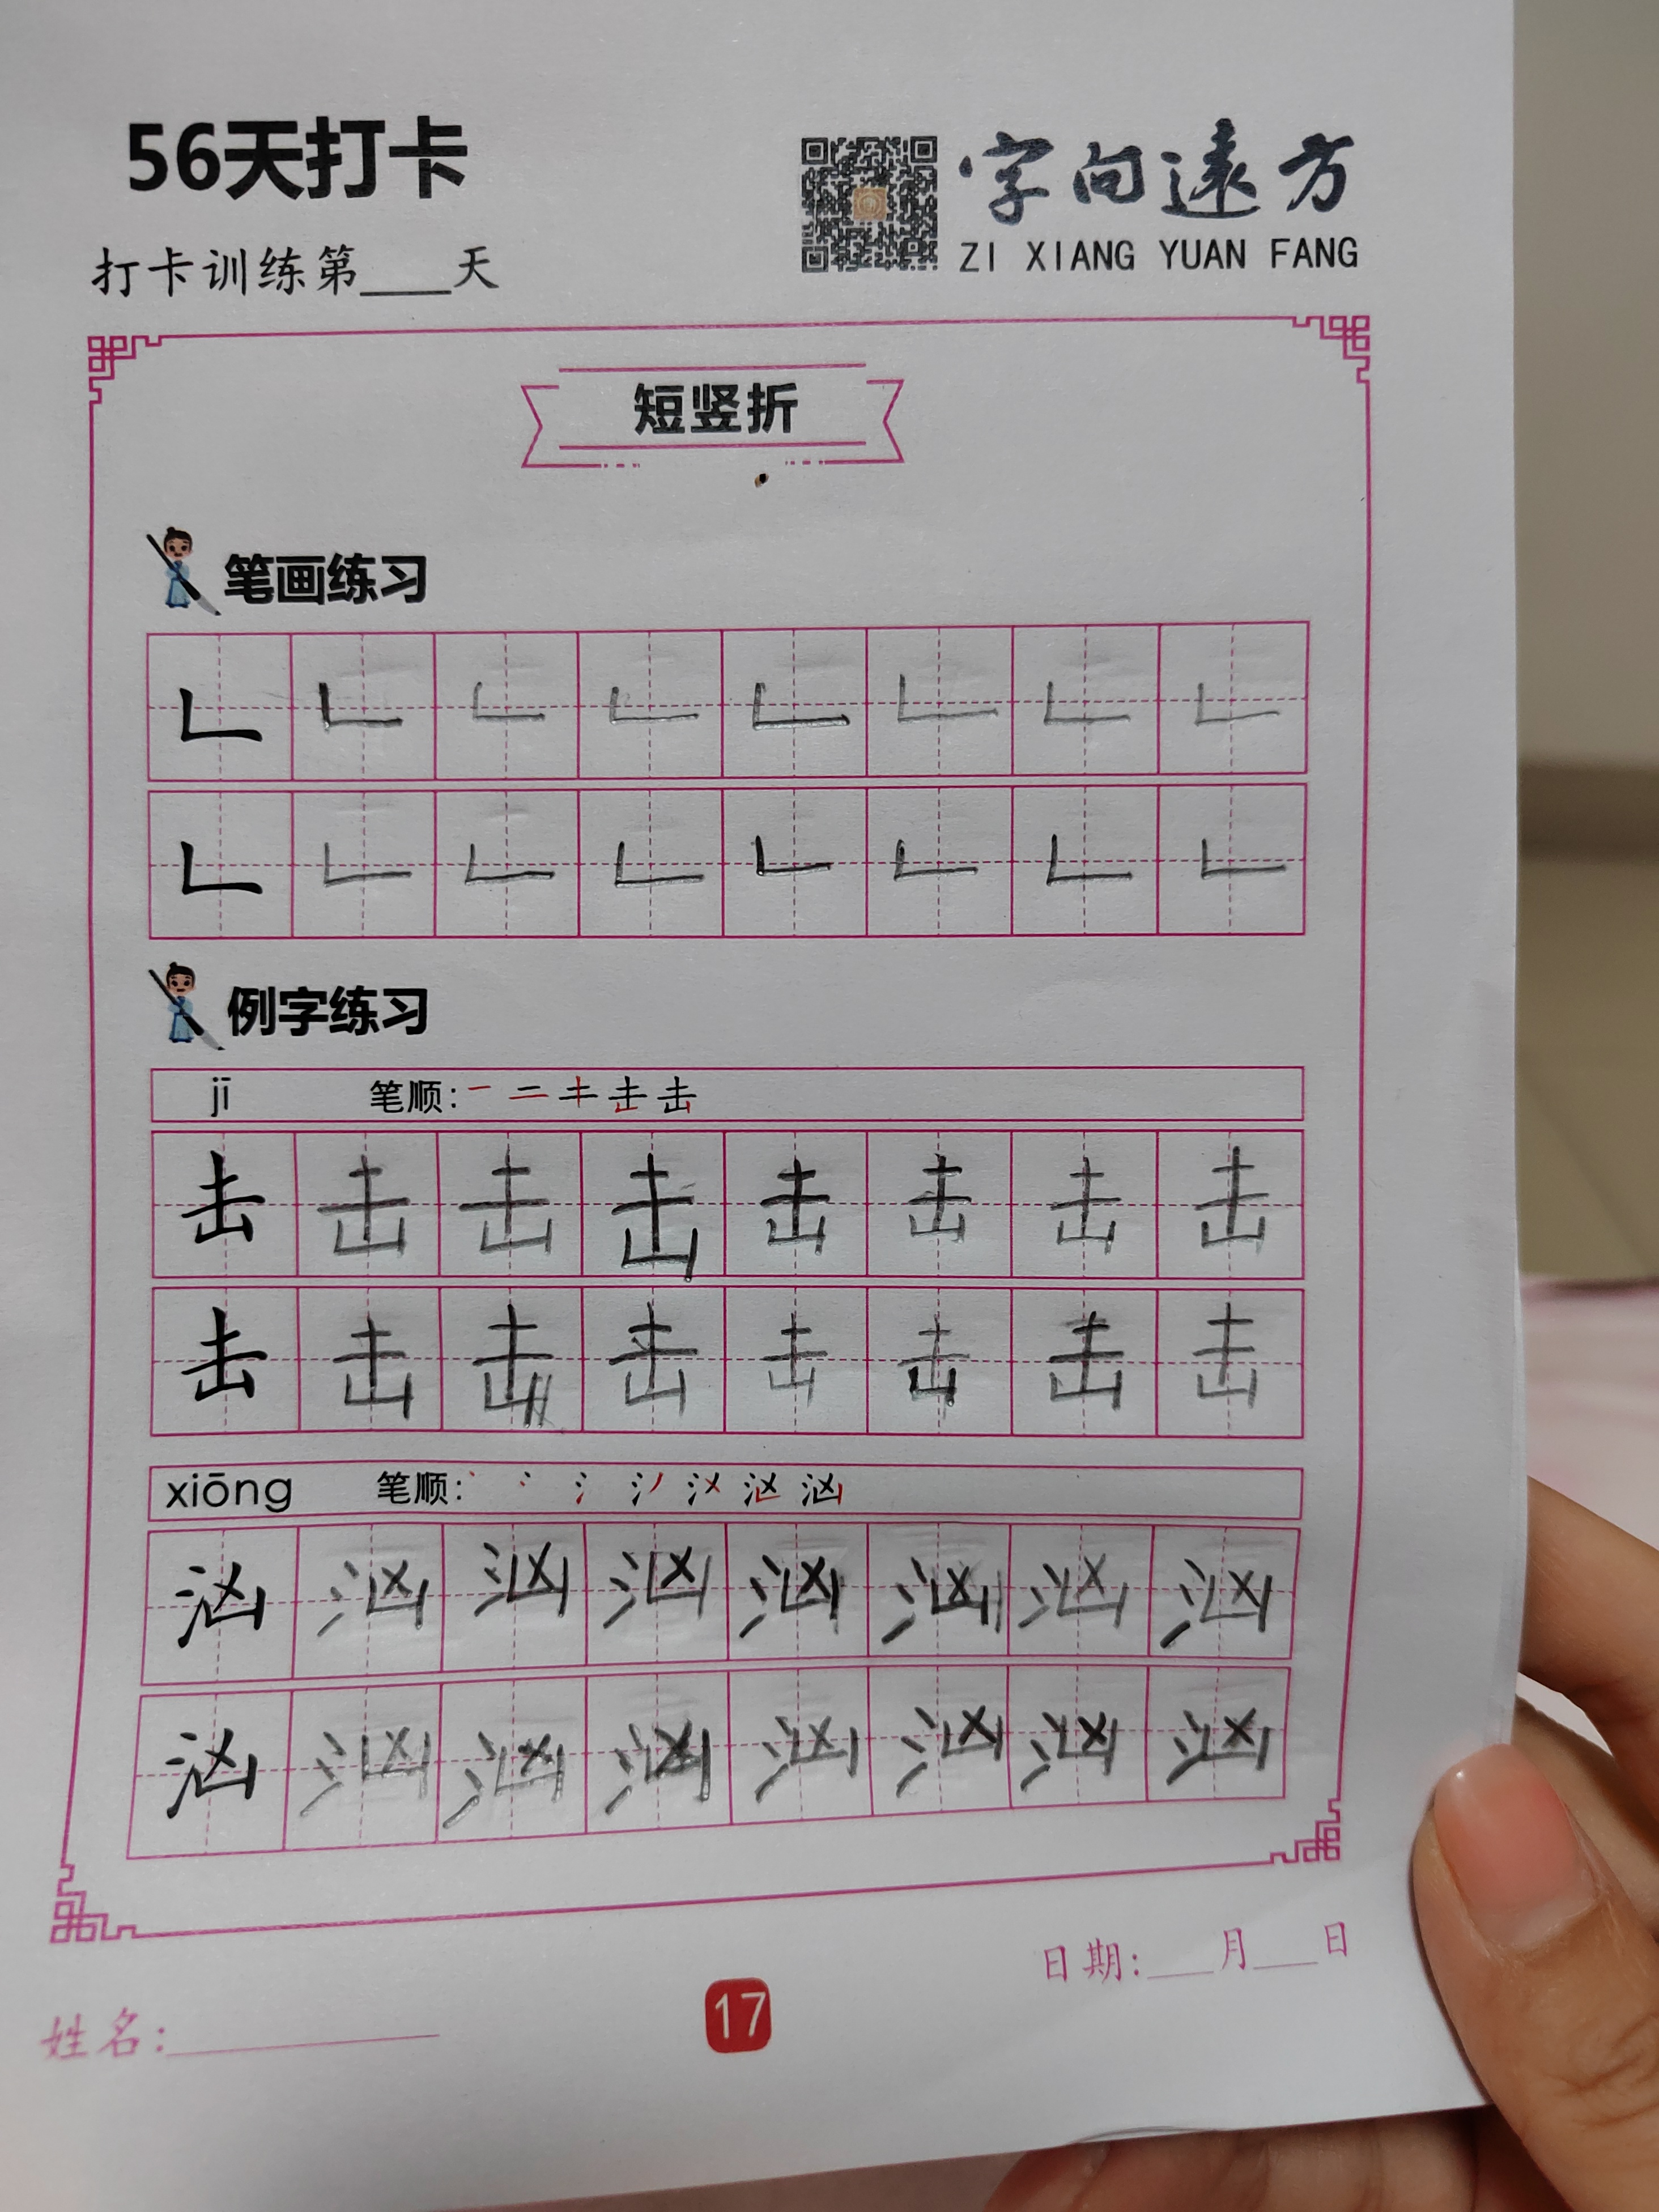 56天打卡
字向遠方
ZI XIANG YUAN FANG
打卡训练第____天
短竖折
笔画练习
𠃊 𠃊 𠃊 𠃊 𠃊 𠃊 𠃊 𠃊
𠃊 𠃊 𠃊 𠃊 𠃊 𠃊 𠃊 𠃊
例字练习
jī 笔顺:
击 击 击 击 击 击 击 击
击 击 击 击 击 击 击 击
xiōng 笔顺:
汹 汹 汹 汹 汹 汹 汹 汹
汹 汹 汹 汹 汹 汹 汹 汹
日期:___月___日
姓名:
17